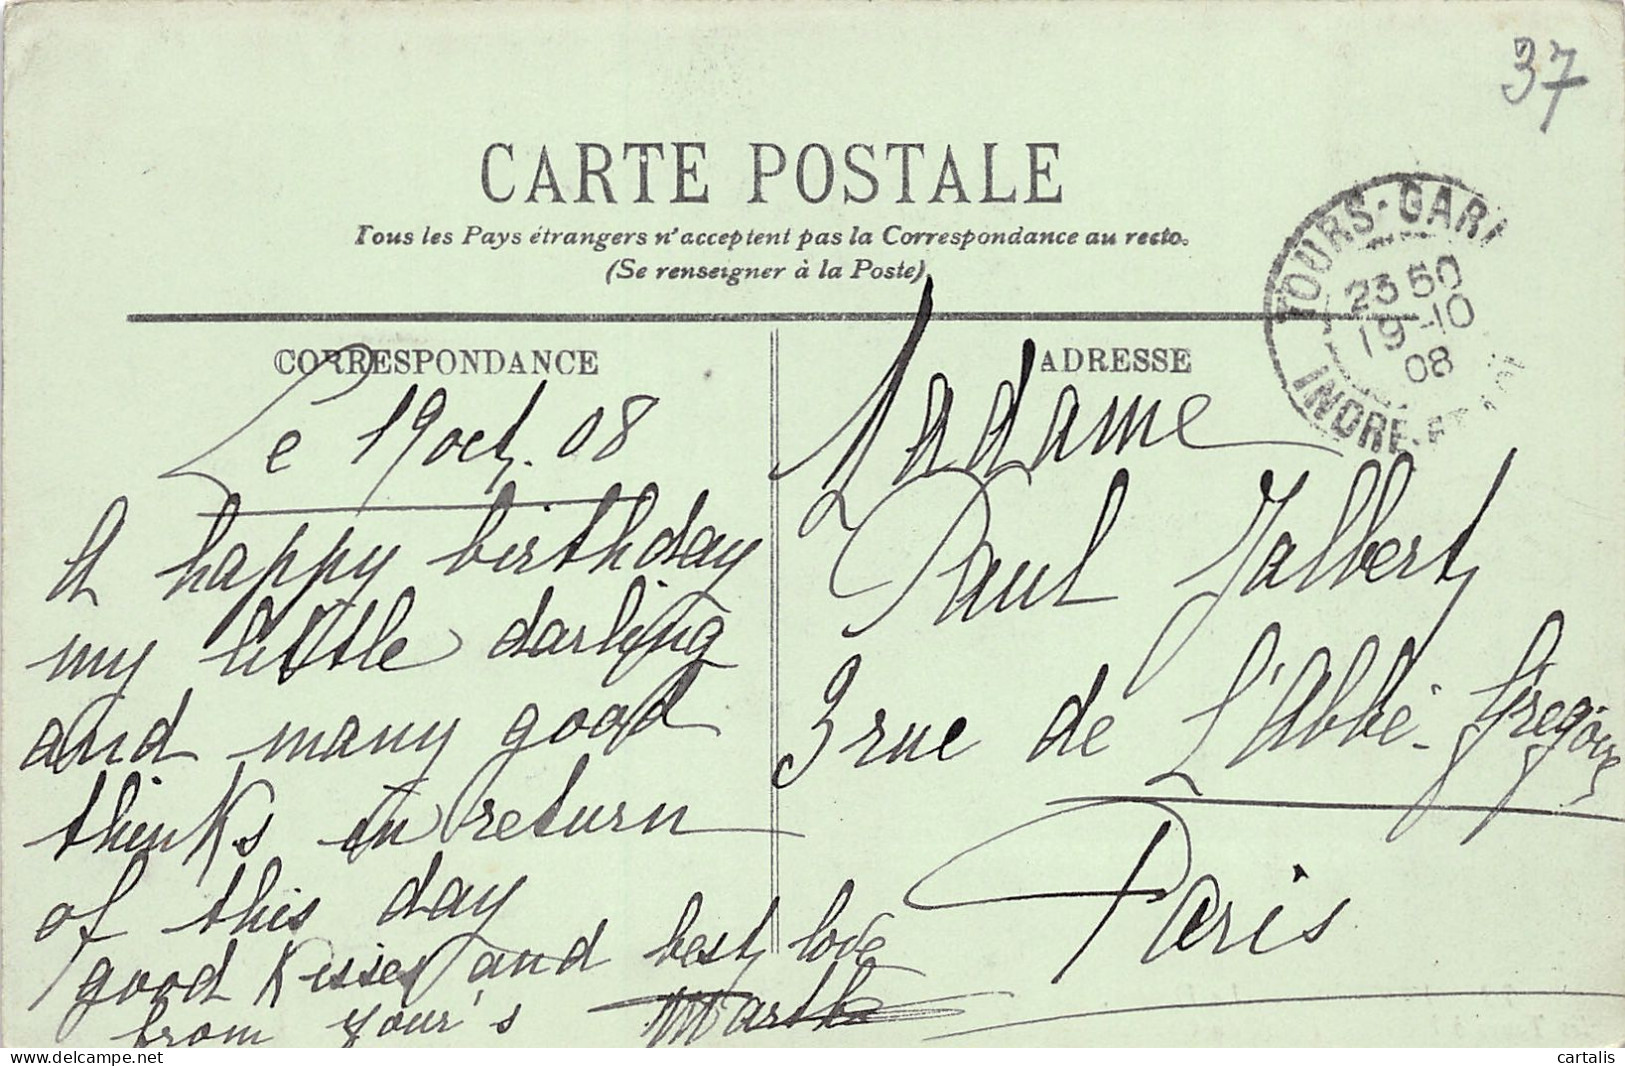 37
CARTE POSTALE
Tous les Pays étrangers n'acceptent pas la Correspondance au recto.
(Se renseigner à la Poste)
TOURS-GARE
23 50
19-10
08
INDRE-ET-
CORRESPONDANCE
Le 19 oct. 08
A happy birthday
my little darling
and many good
thinks in return
of this day
good Kisses and best love
from your's Martha
ADRESSE
Madame
Paul Jalbert
3 rue de L'Abbé-Grégoire
Paris
cartalis
www.delcampe.net